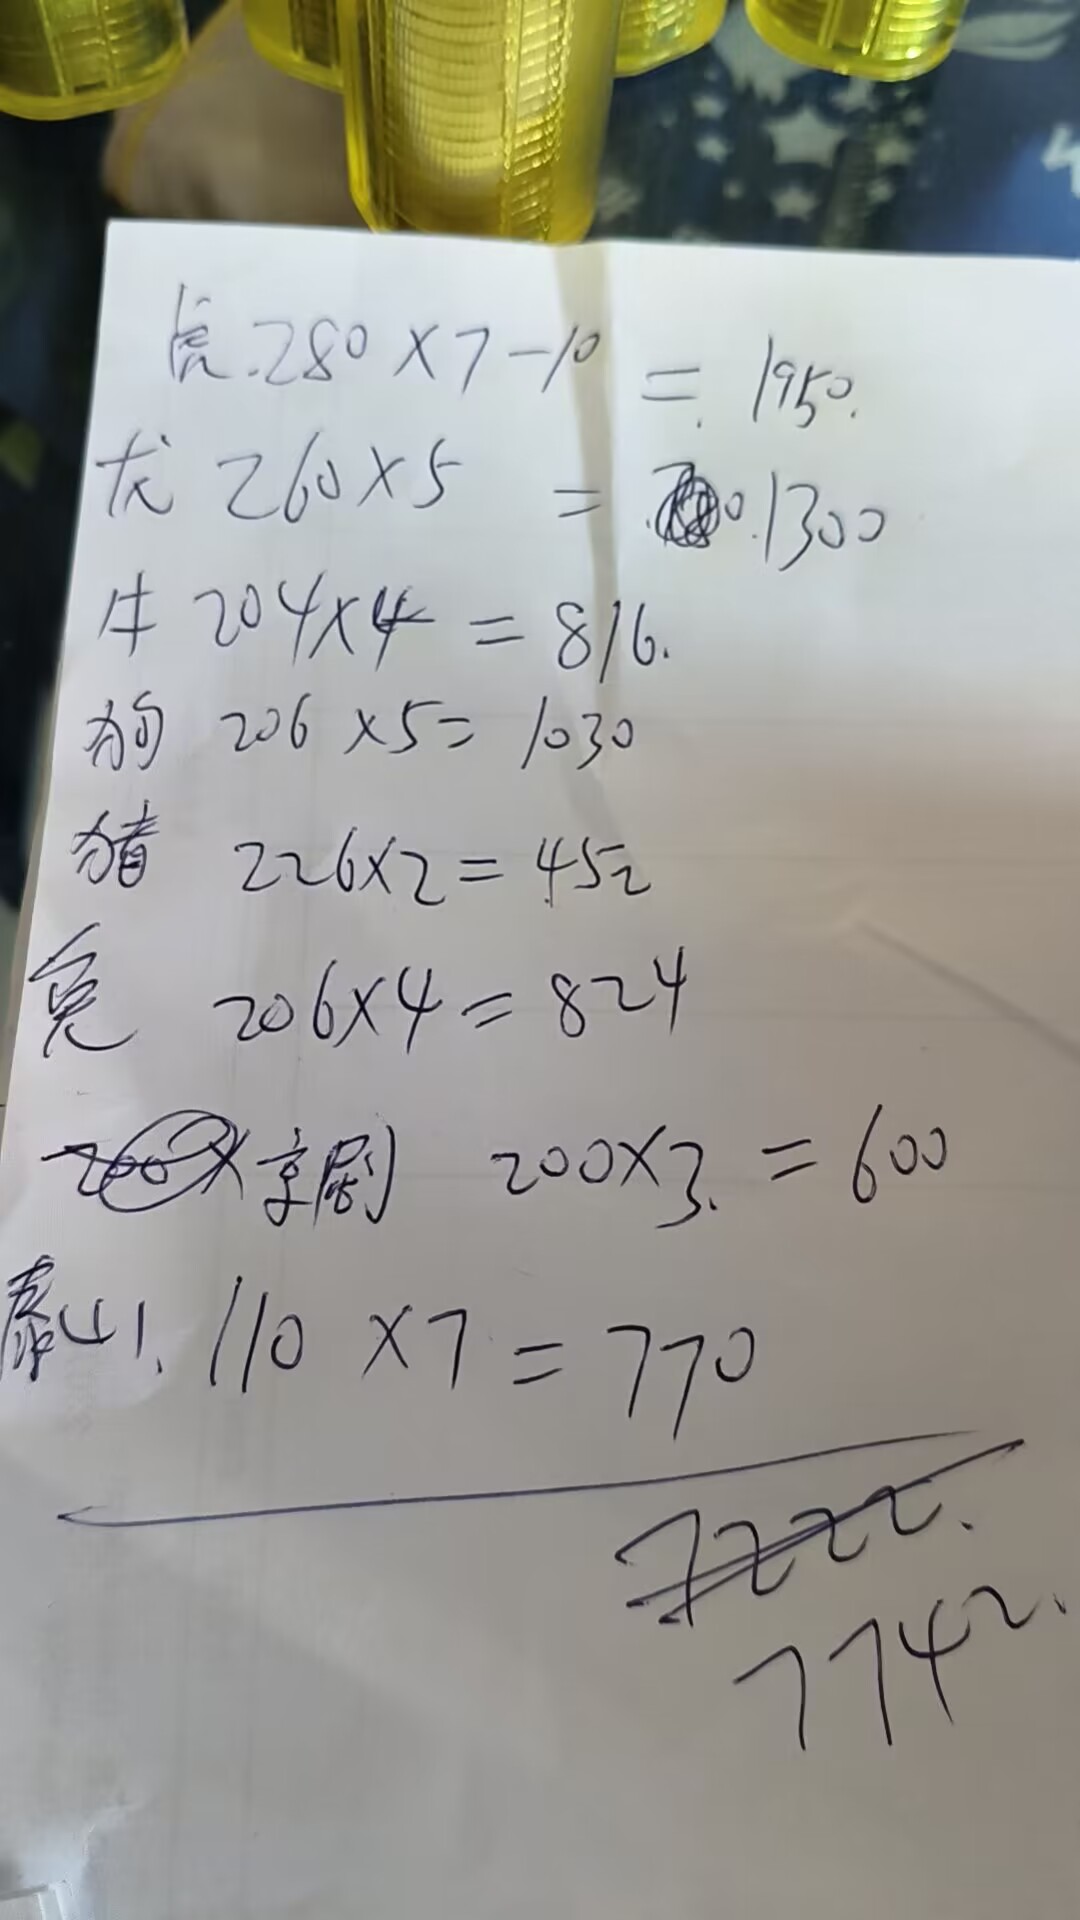 虎.280×7-10 = 1950.
龙 260×5 = 1300
牛 204×4 = 816.
狗 206×5= 1030
猪 226×2=452
兔 206×4=824
京剧 200×3. = 600
泰山. 110×7=770
7222.
7742.